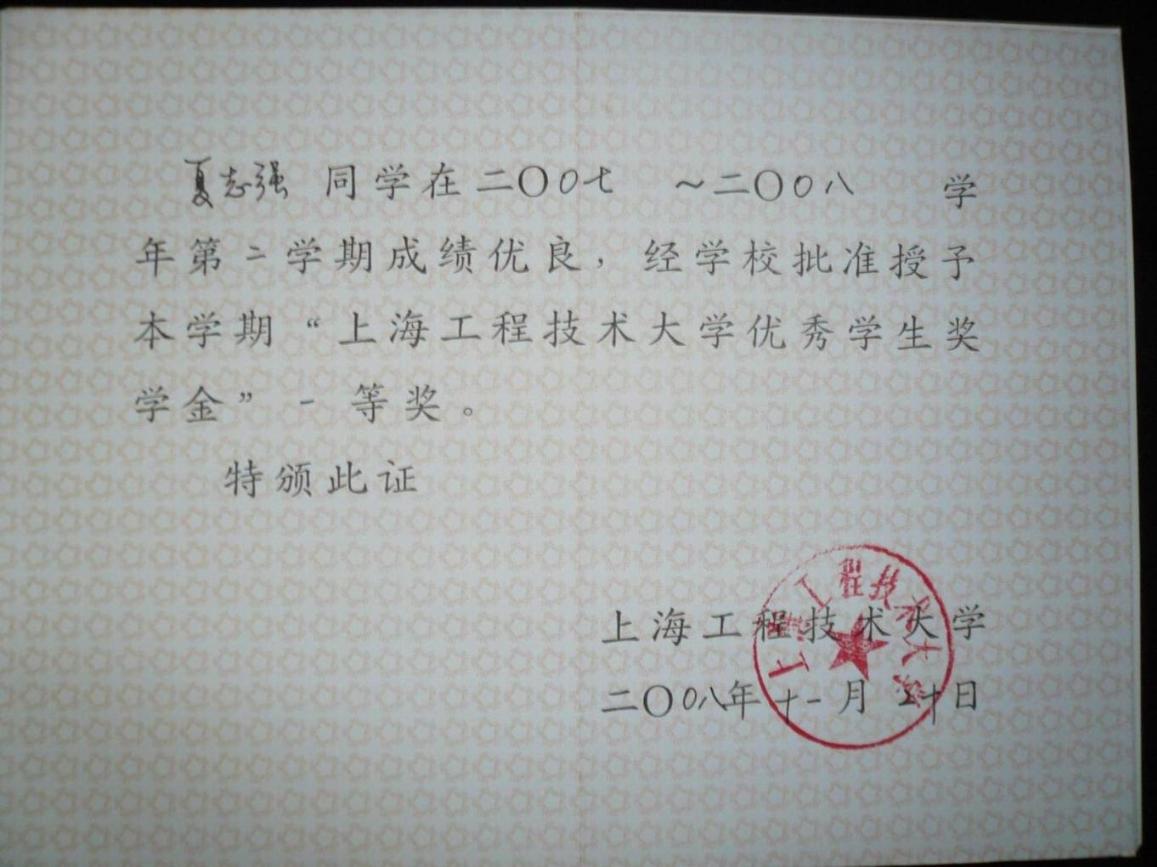 夏志强 同学在二〇〇七 ～二〇〇八 学
年第二学期成绩优良，经学校批准授予
本学期“上海工程技术大学优秀学生奖
学金”一等奖。
特颁此证
上海工程技术大学
二〇〇八年十一月二十日
上海工程技术大学